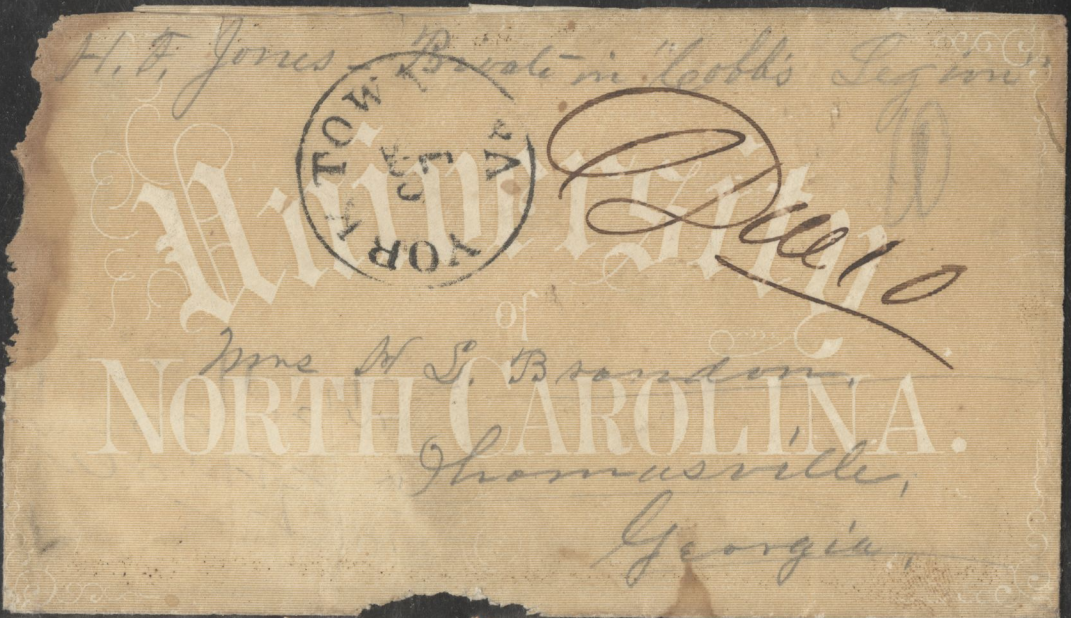 H. T. Jones - Private in "Cobb's Legion"
YORKTOWN Va
JAN
7
Due 10
10
University
of
NORTH CAROLINA.
Mrs H S. Brandon,
Thomasville,
Georgia,